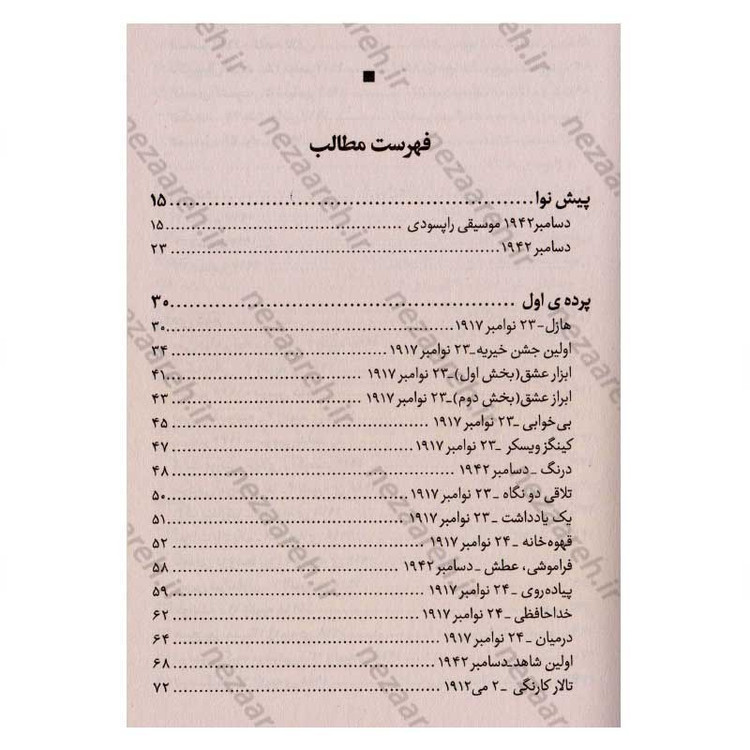 فهرست مطالب
پیش نوا ........ ۱۵
دسامبر۱۹۴۲ موسیقی راپسودی ........ ۱۵
دسامبر ۱۹۴۲ ........ ۲۳
پرده ی اول ........ ۳۰
هازل-۲۳ نوامبر ۱۹۱۷ ........ ۳۰
اولین جشن خیریه_۲۳ نوامبر ۱۹۱۷ ........ ۳۴
ابزار عشق(بخش اول)_۲۳ نوامبر ۱۹۱۷ ........ ۴۱
ابراز عشق(بخش دوم)_۲۳ نوامبر ۱۹۱۷ ........ ۴۳
بی‌خوابی _ ۲۳ نوامبر ۱۹۱۷ ........ ۴۵
کینگز ویسکر _۲۳ نوامبر ۱۹۱۷ ........ ۴۷
درنگ _دسامبر ۱۹۴۲ ........ ۴۸
تلاقی دو نگاه _۲۳ نوامبر ۱۹۱۷ ........ ۵۰
یک یادداشت _۲۳ نوامبر ۱۹۱۷ ........ ۵۱
قهوه‌خانه _ ۲۴ نوامبر ۱۹۱۷ ........ ۵۲
فراموشی، عطش _ دسامبر ۱۹۴۲ ........ ۵۸
پیاده‌روی _ ۲۴ نوامبر ۱۹۱۷ ........ ۵۹
خداحافظی _ ۲۴ نوامبر ۱۹۱۷ ........ ۶۲
درمیان _ ۲۴ نوامبر ۱۹۱۷ ........ ۶۴
اولین شاهد_دسامبر ۱۹۴۲ ........ ۶۸
تالار کارنگی _ ۲ می ۱۹۱۲ ........ ۷۲
nezaareh.ir